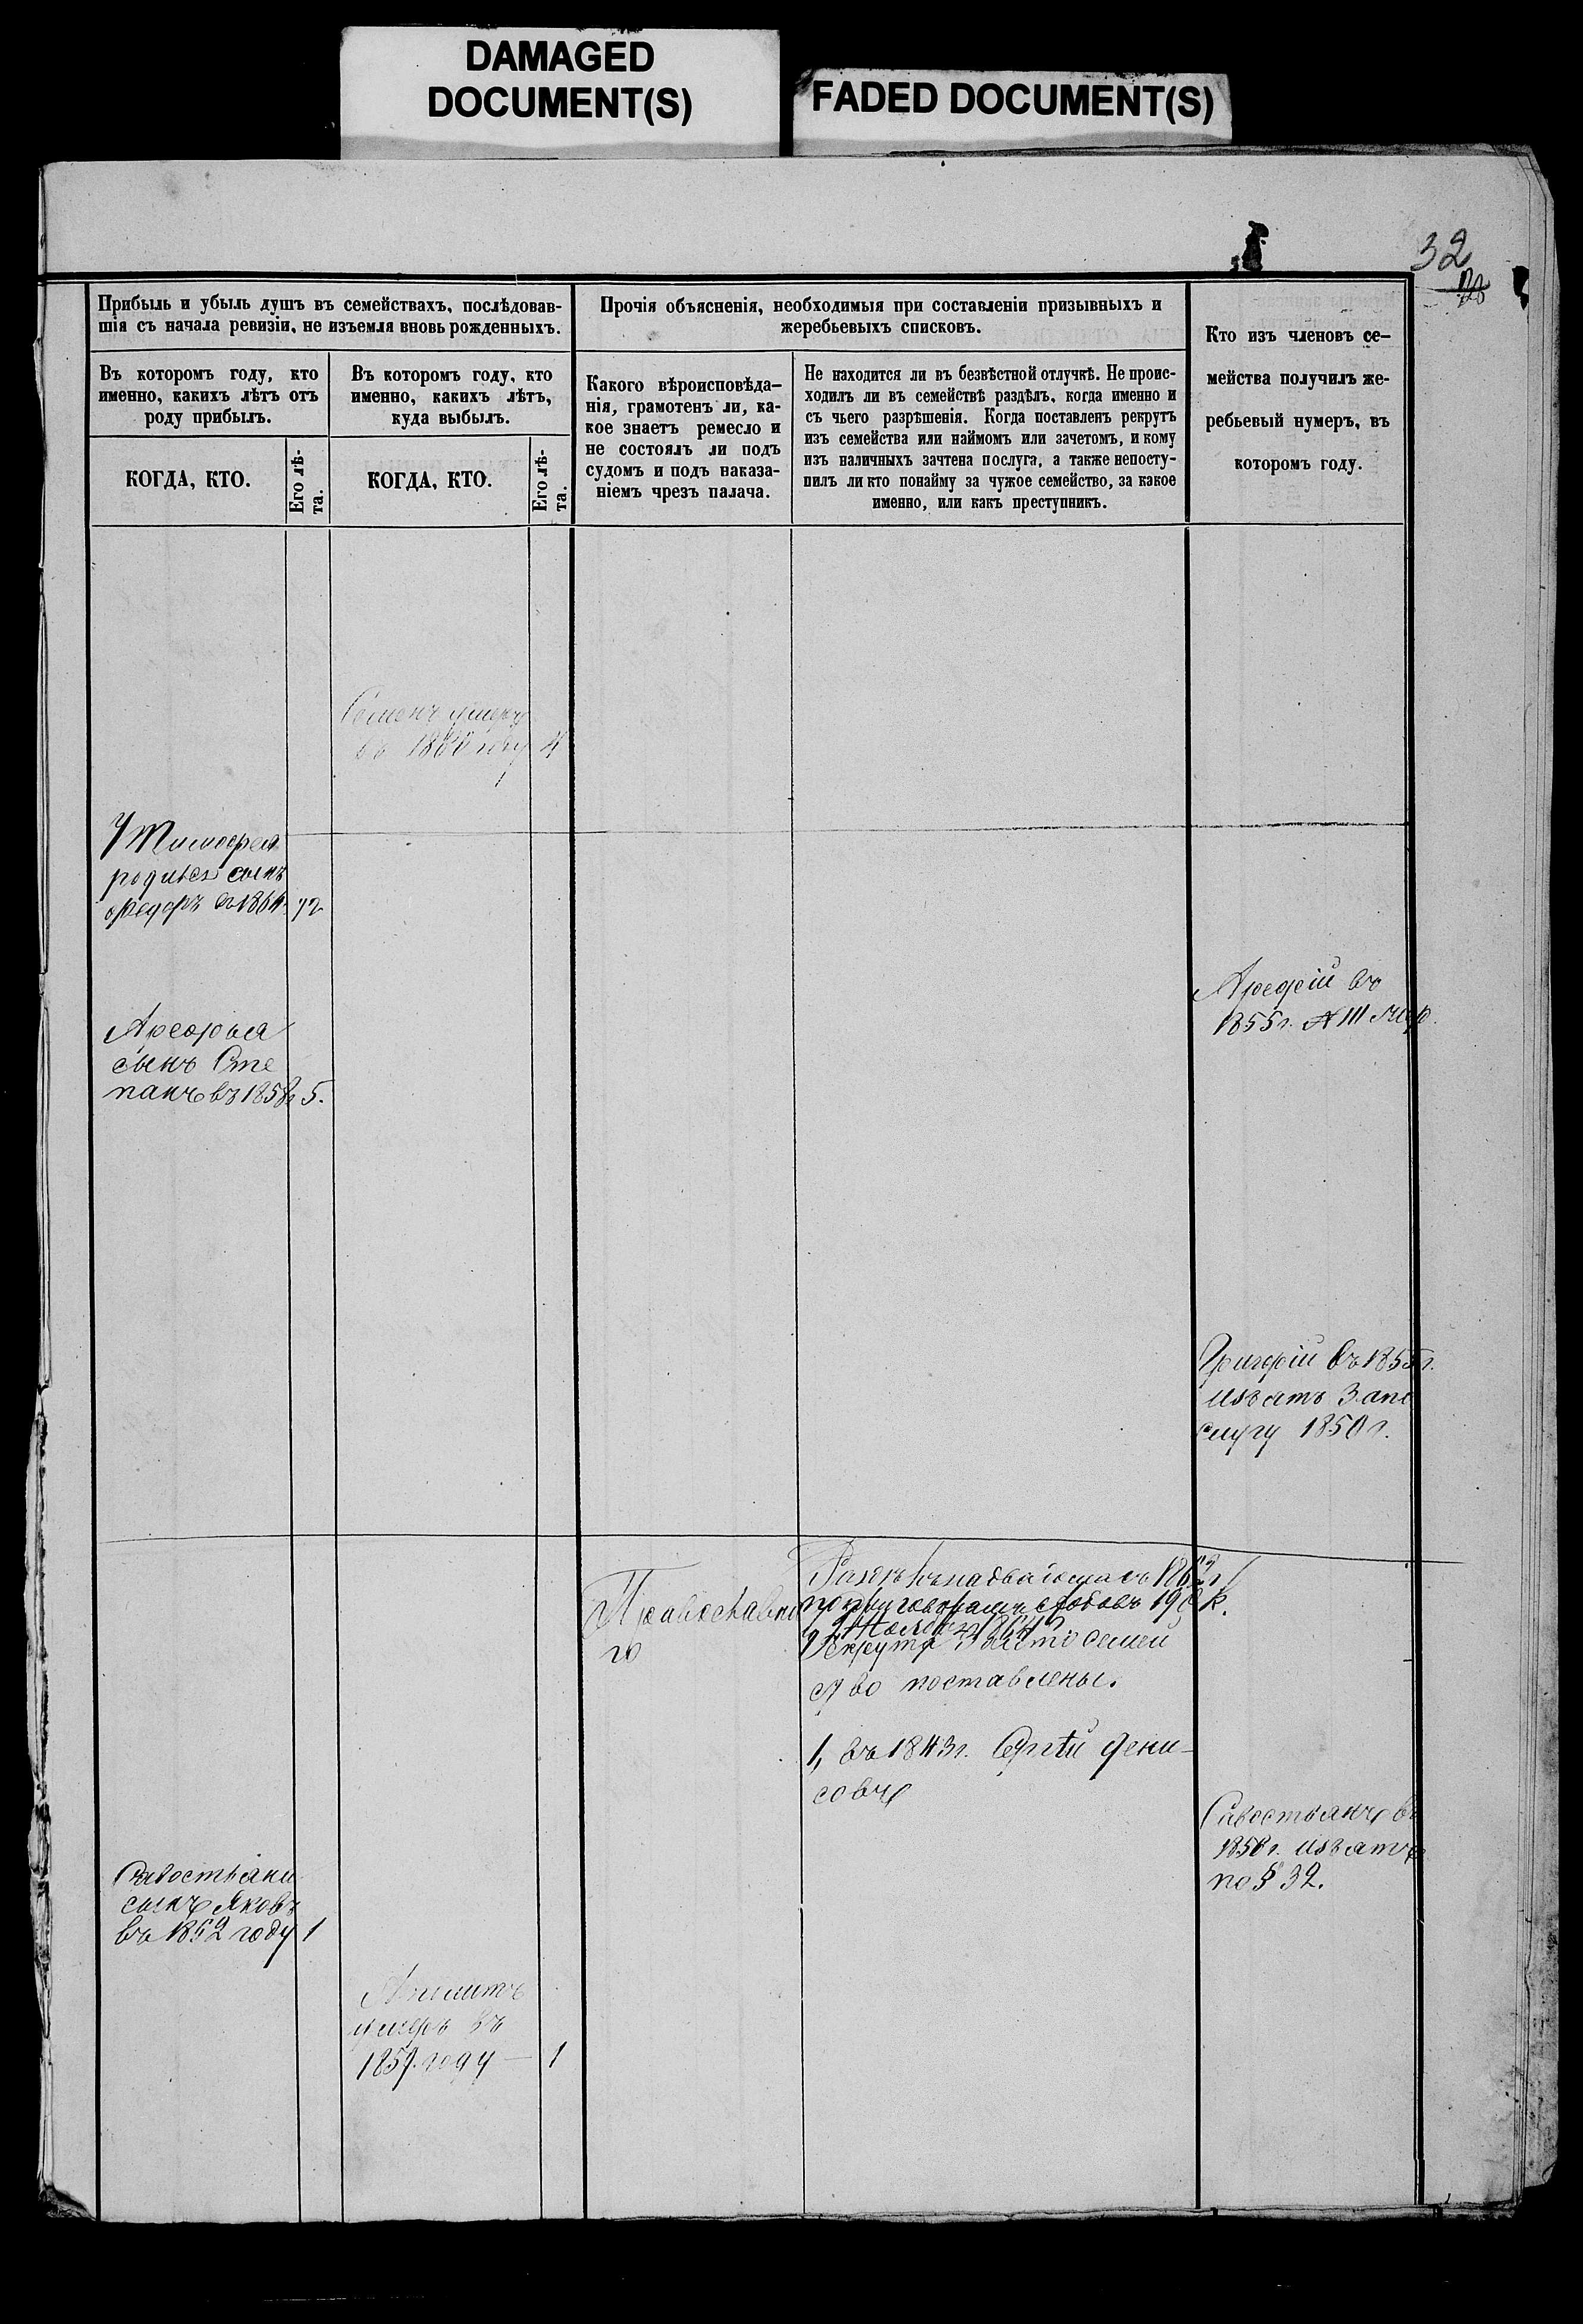 DAMAGED
DOCUMENT(S)
FADED DOCUMENT(S)
32
Прибыль и убыль душъ въ семействахъ, послѣдовав-
шія съ начала ревизіи, не изъемля вновь рожденныхъ.
Прочія объясненія, необходимыя при составленіи призывныхъ и
жеребьевыхъ списковъ.
Кто изъ членовъ се-
мейства получилъ же-
ребьевый нумеръ, въ
которомъ году.
Въ которомъ году, кто
именно, какихъ лѣтъ отъ
роду прибылъ.
Въ которомъ году, кто
именно, какихъ лѣтъ,
куда выбылъ.
Какого вѣроисповѣда-
нія, грамотенъ ли, ка-
кое знаетъ ремесло и
не состоялъ ли подъ
судомъ и подъ наказа-
ніемъ чрезъ палача.
Не находится ли въ безвѣстной отлучкѣ. Не проис-
ходилъ ли въ семействѣ раздѣлъ, когда именно и
съ чьего разрѣшенія. Когда поставленъ рекрутъ
изъ семейства или наймомъ или зачетомъ, и кому
изъ наличныхъ зачтена послуга, а также непосту-
пилъ ли кто понайму за чужое семейство, за какое
именно, или какъ преступникъ.
КОГДА, КТО.
Его лѣ-
та.
КОГДА, КТО.
Его лѣ-
та.
Семенъ умеръ
въ 1860 году 4
У Тимофея
родился сынъ
Федоръ въ 1864
Арефій въ
1855 г.
Арефья
сынъ Сте
панъ въ 1858 г 5.
Григорій въ 1855 г.
изъятъ Запо
слугу 1850 г.
Православна
го
Рекрута семей
ство поставлены.
1, въ 1843 г. Сергѣй Дени-
совъ
Савостьянъ въ
1858 г. изъятъ
по § 32.
Савостьяна
сынъ Яковъ
въ 1852 году 1
умеръ въ
1859 году — 1